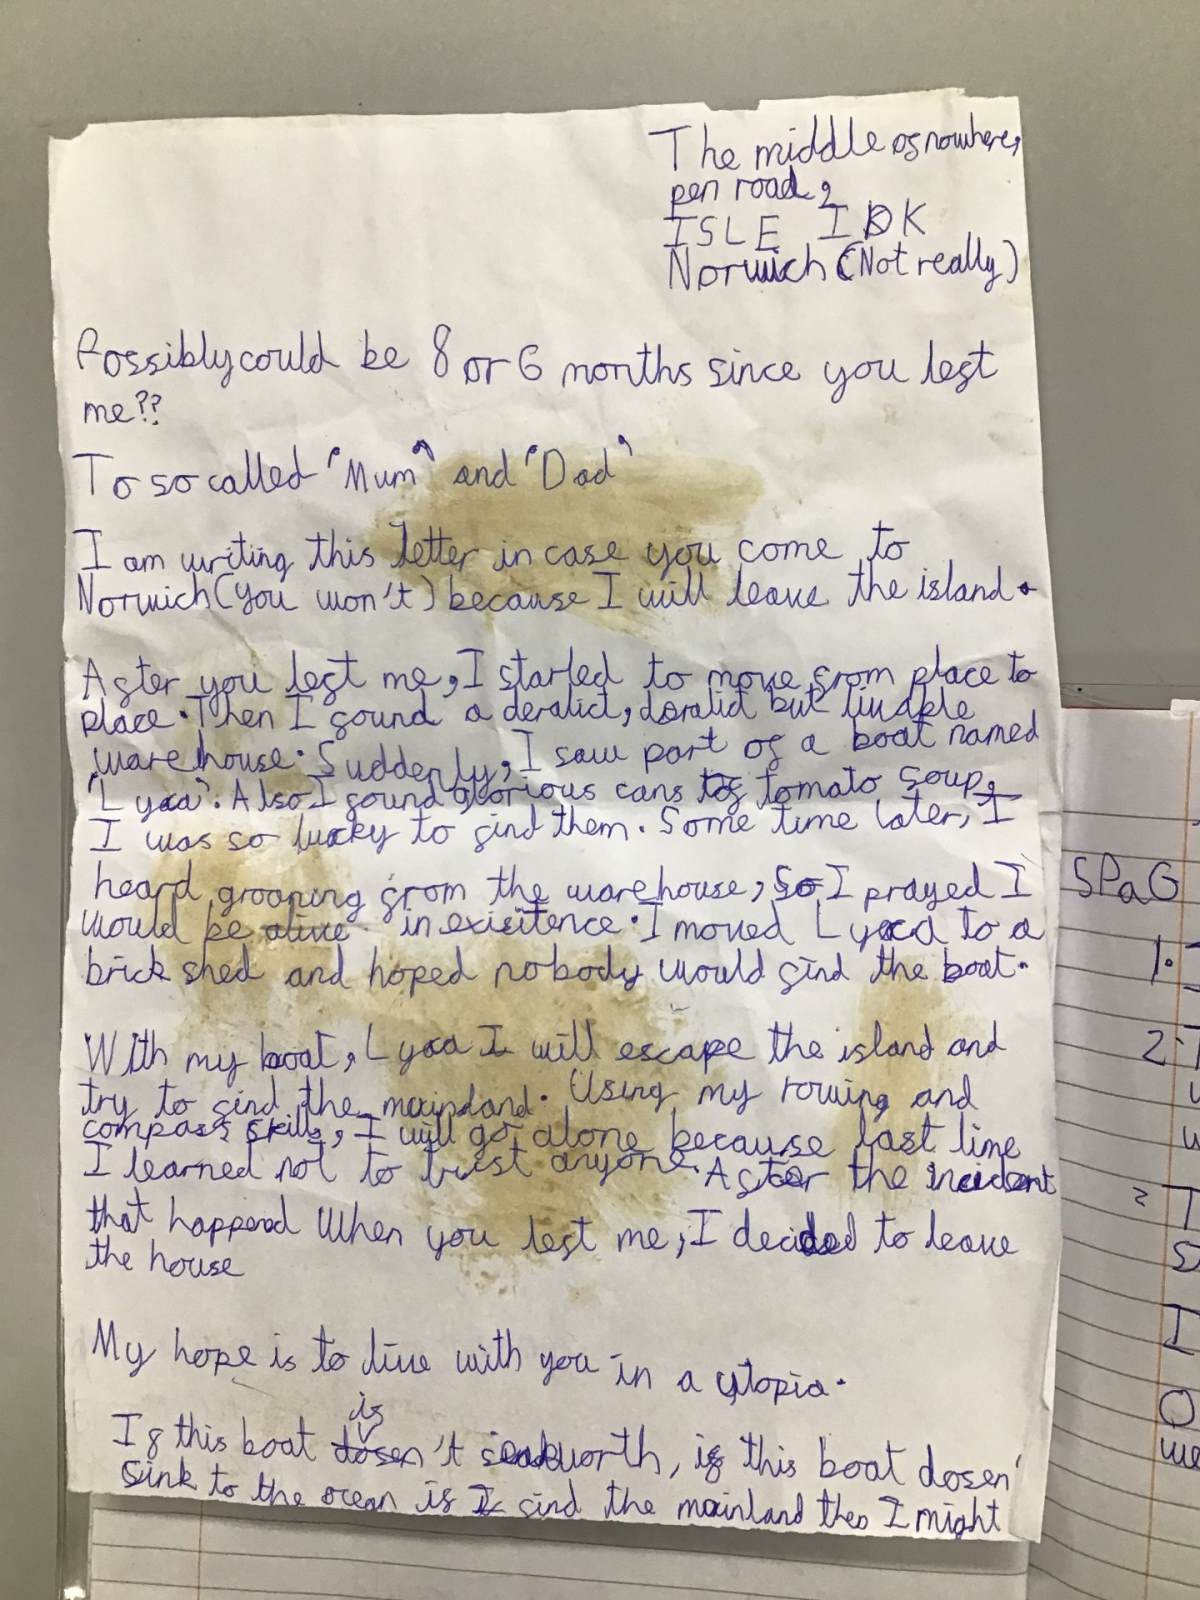 The middle of nowhere,
pen road,
ISLE IDK
Norwich (Not really)
Possibly could be 8 or 6 months since you left
me??
To so called "Mum" and "Dad"
I am writing this letter in case you come to
Norwich (you won't) because I will leave the island.
After you left me, I started to move from place to
place. Then I found a deralict, deralict but livable
warehouse. Suddenly, I saw part of a boat named
"Lyca". Also I found glorious cans of tomato soup,
I was so lucky to find them. Some time later, I
heard groaning from the warehouse, so I prayed I
would be alive in existence. I moved Lyca to a
brick shed and hoped nobody would find the boat.
With my boat, Lyca I will escape the island and
try to find the mainland. Using my rowing and
compass skills, I will go alone because last time
I learned not to trust anyone. After the incident
that happened When you left me, I decided to leave
the house
My hope is to live with you in a utopia.
is
If this boat dosen't seaworth, if this boat dosen'
sink to the ocean if I find the mainland then I might
SPaG
1.
2.